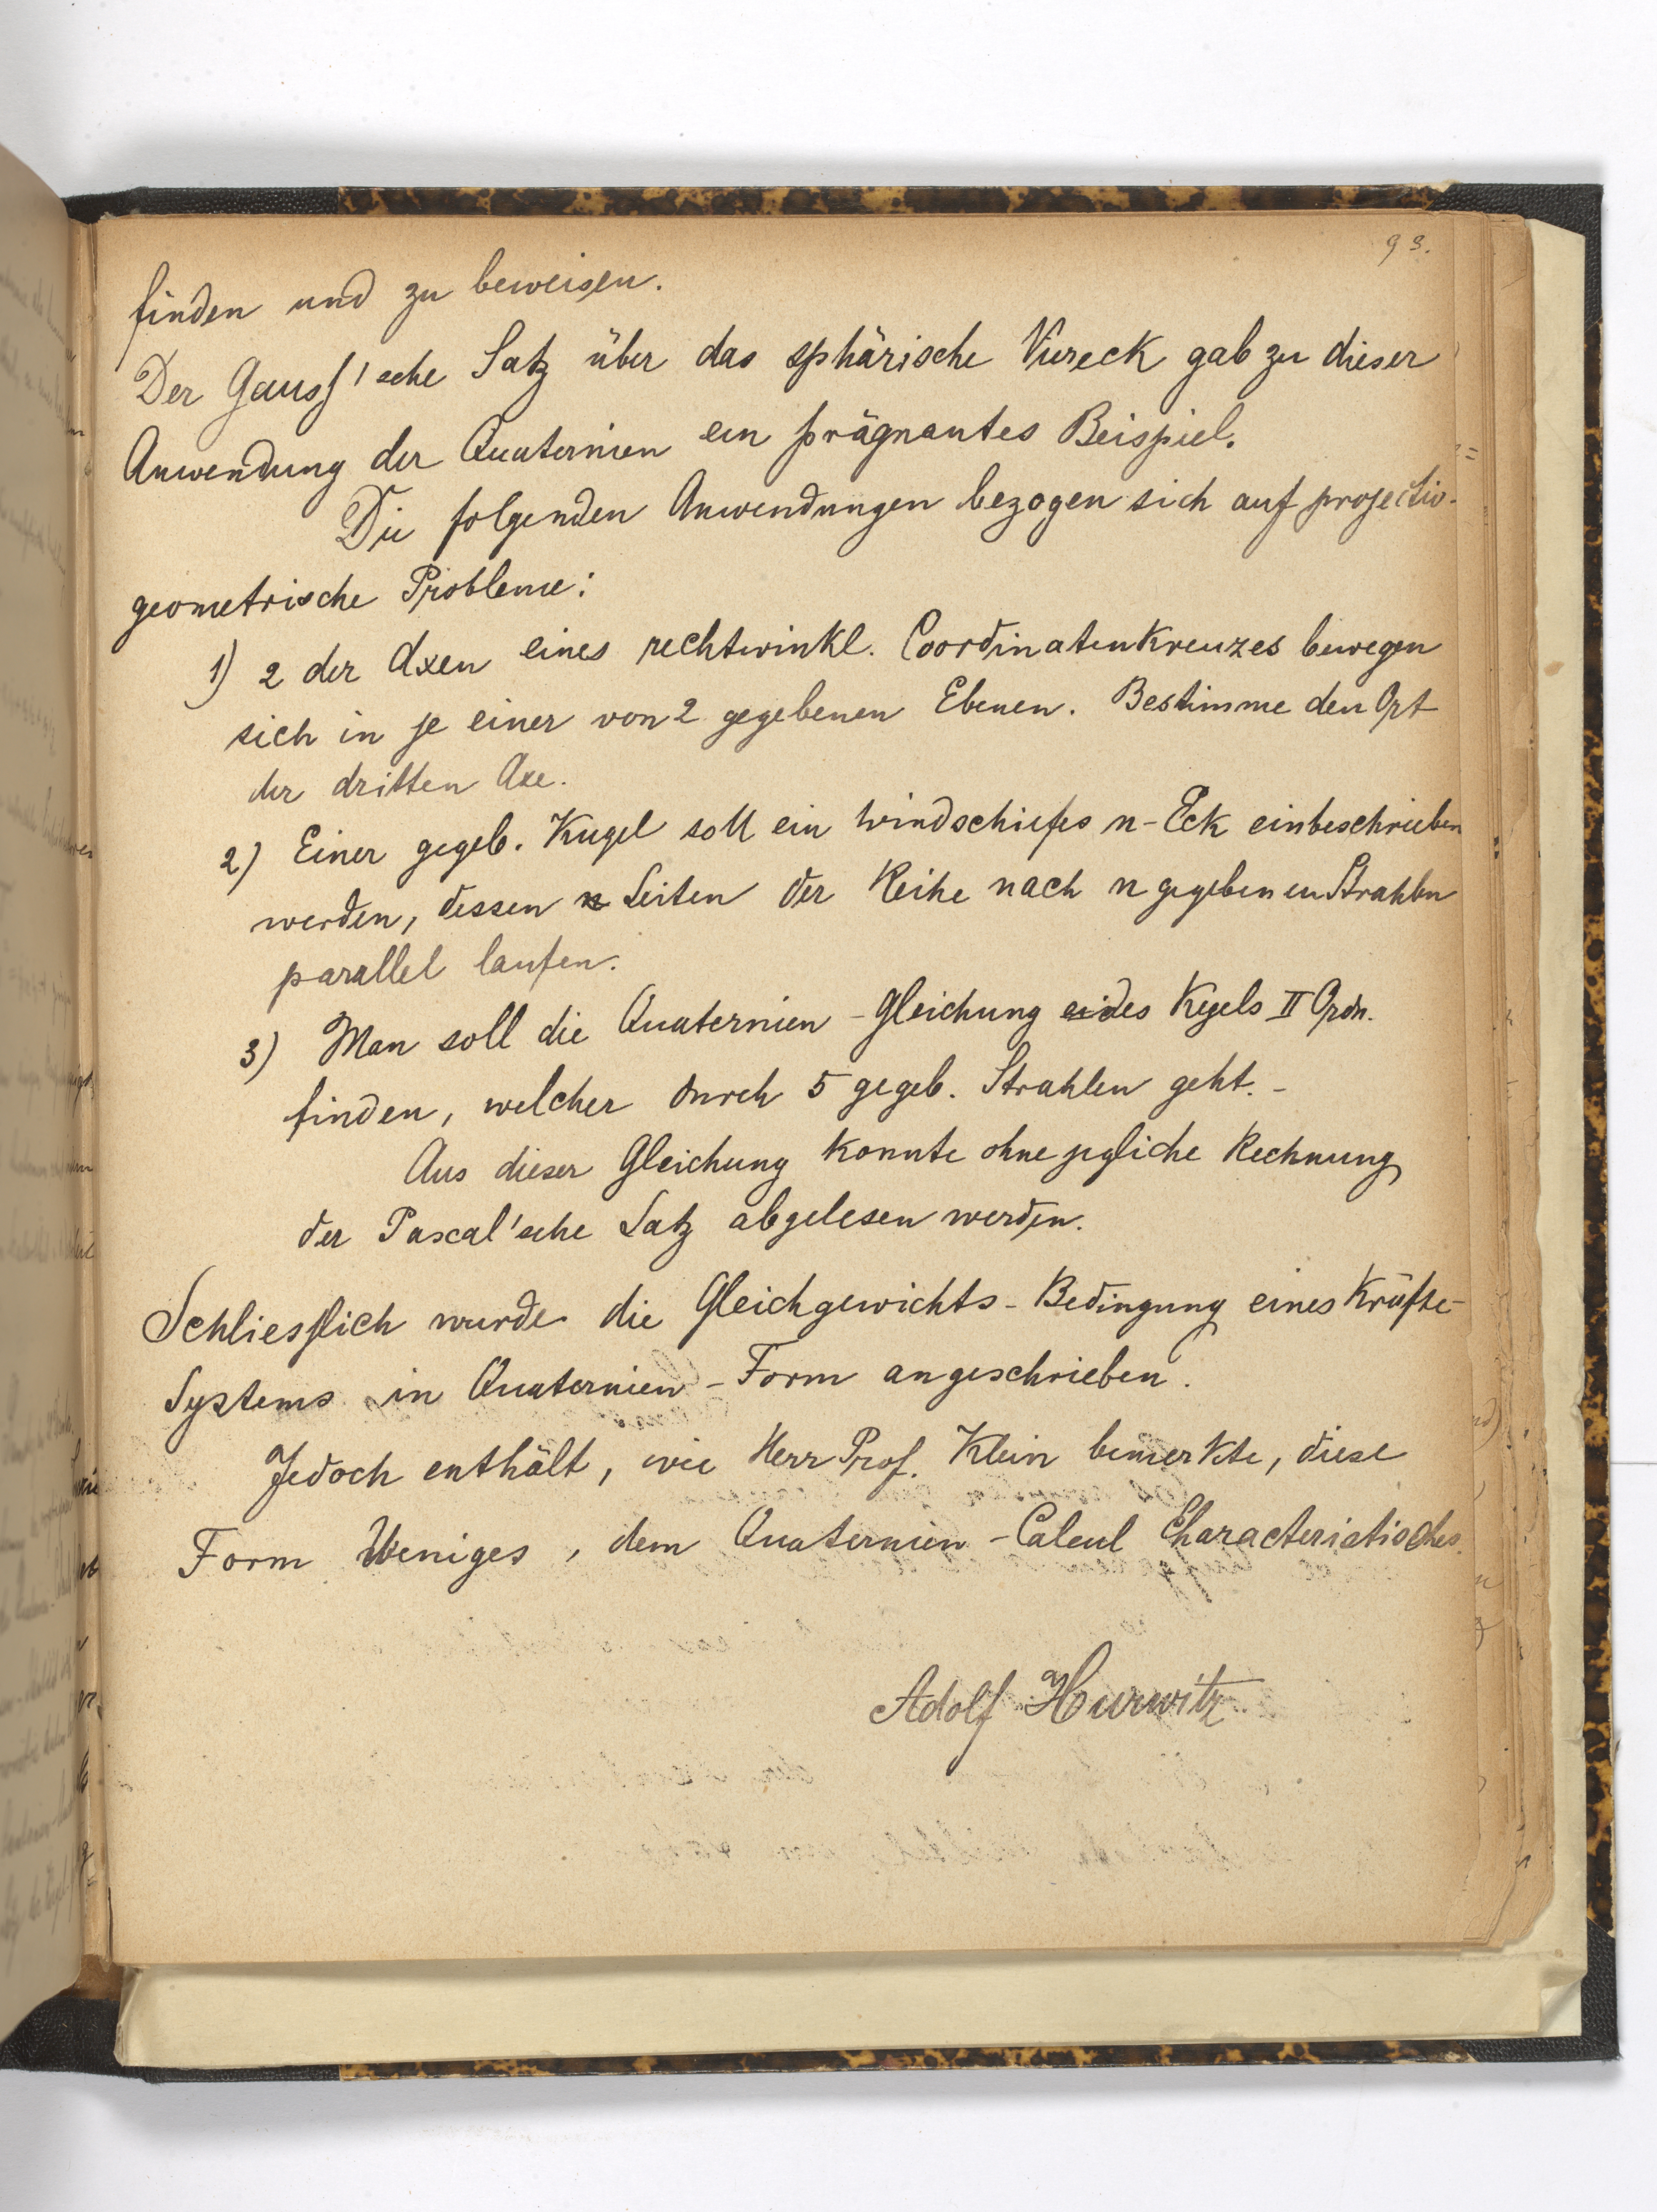 93.
finden und zu beweisen.
Der Gauss'sche Satz über das sphärische Viereck gab zu dieser
Anwendung der Quaternien ein prägnantes Beispiel.
Die folgenden Anwendungen bezogen sich auf projectiv-
geometrische Probleme:
1) 2 der Axen eines rechtwinkl. Coordinatenkreuzes bewegen
sich in je einer von 2 gegebenen Ebenen. Bestimme den Ort
der dritten Axe.
2) Einer gegeb. Kugel soll ein windschiefes n-Eck einbeschrieben
werden, dessen n Seiten der Reihe nach n gegebenen Strahlen
parallel laufen.
3) Man soll die Quaternien-Gleichung des Kegels II Ordn.
finden, welcher durch 5 gegeb. Strahlen geht.-
Aus dieser Gleichung konnte ohne jegliche Rechnung
der Pascal'sche Satz abgelesen werden.
Schliesslich wurde die Gleichgewichts-Bedingung eines Kräfte-
Systems in Quaternien-Form angeschrieben.
Jedoch enthält, wie Herr Prof. Klein bemerkte, diese
Form Weniges, dem Quaternien-Calcul Characteristisches.
Adolf Hurwitz